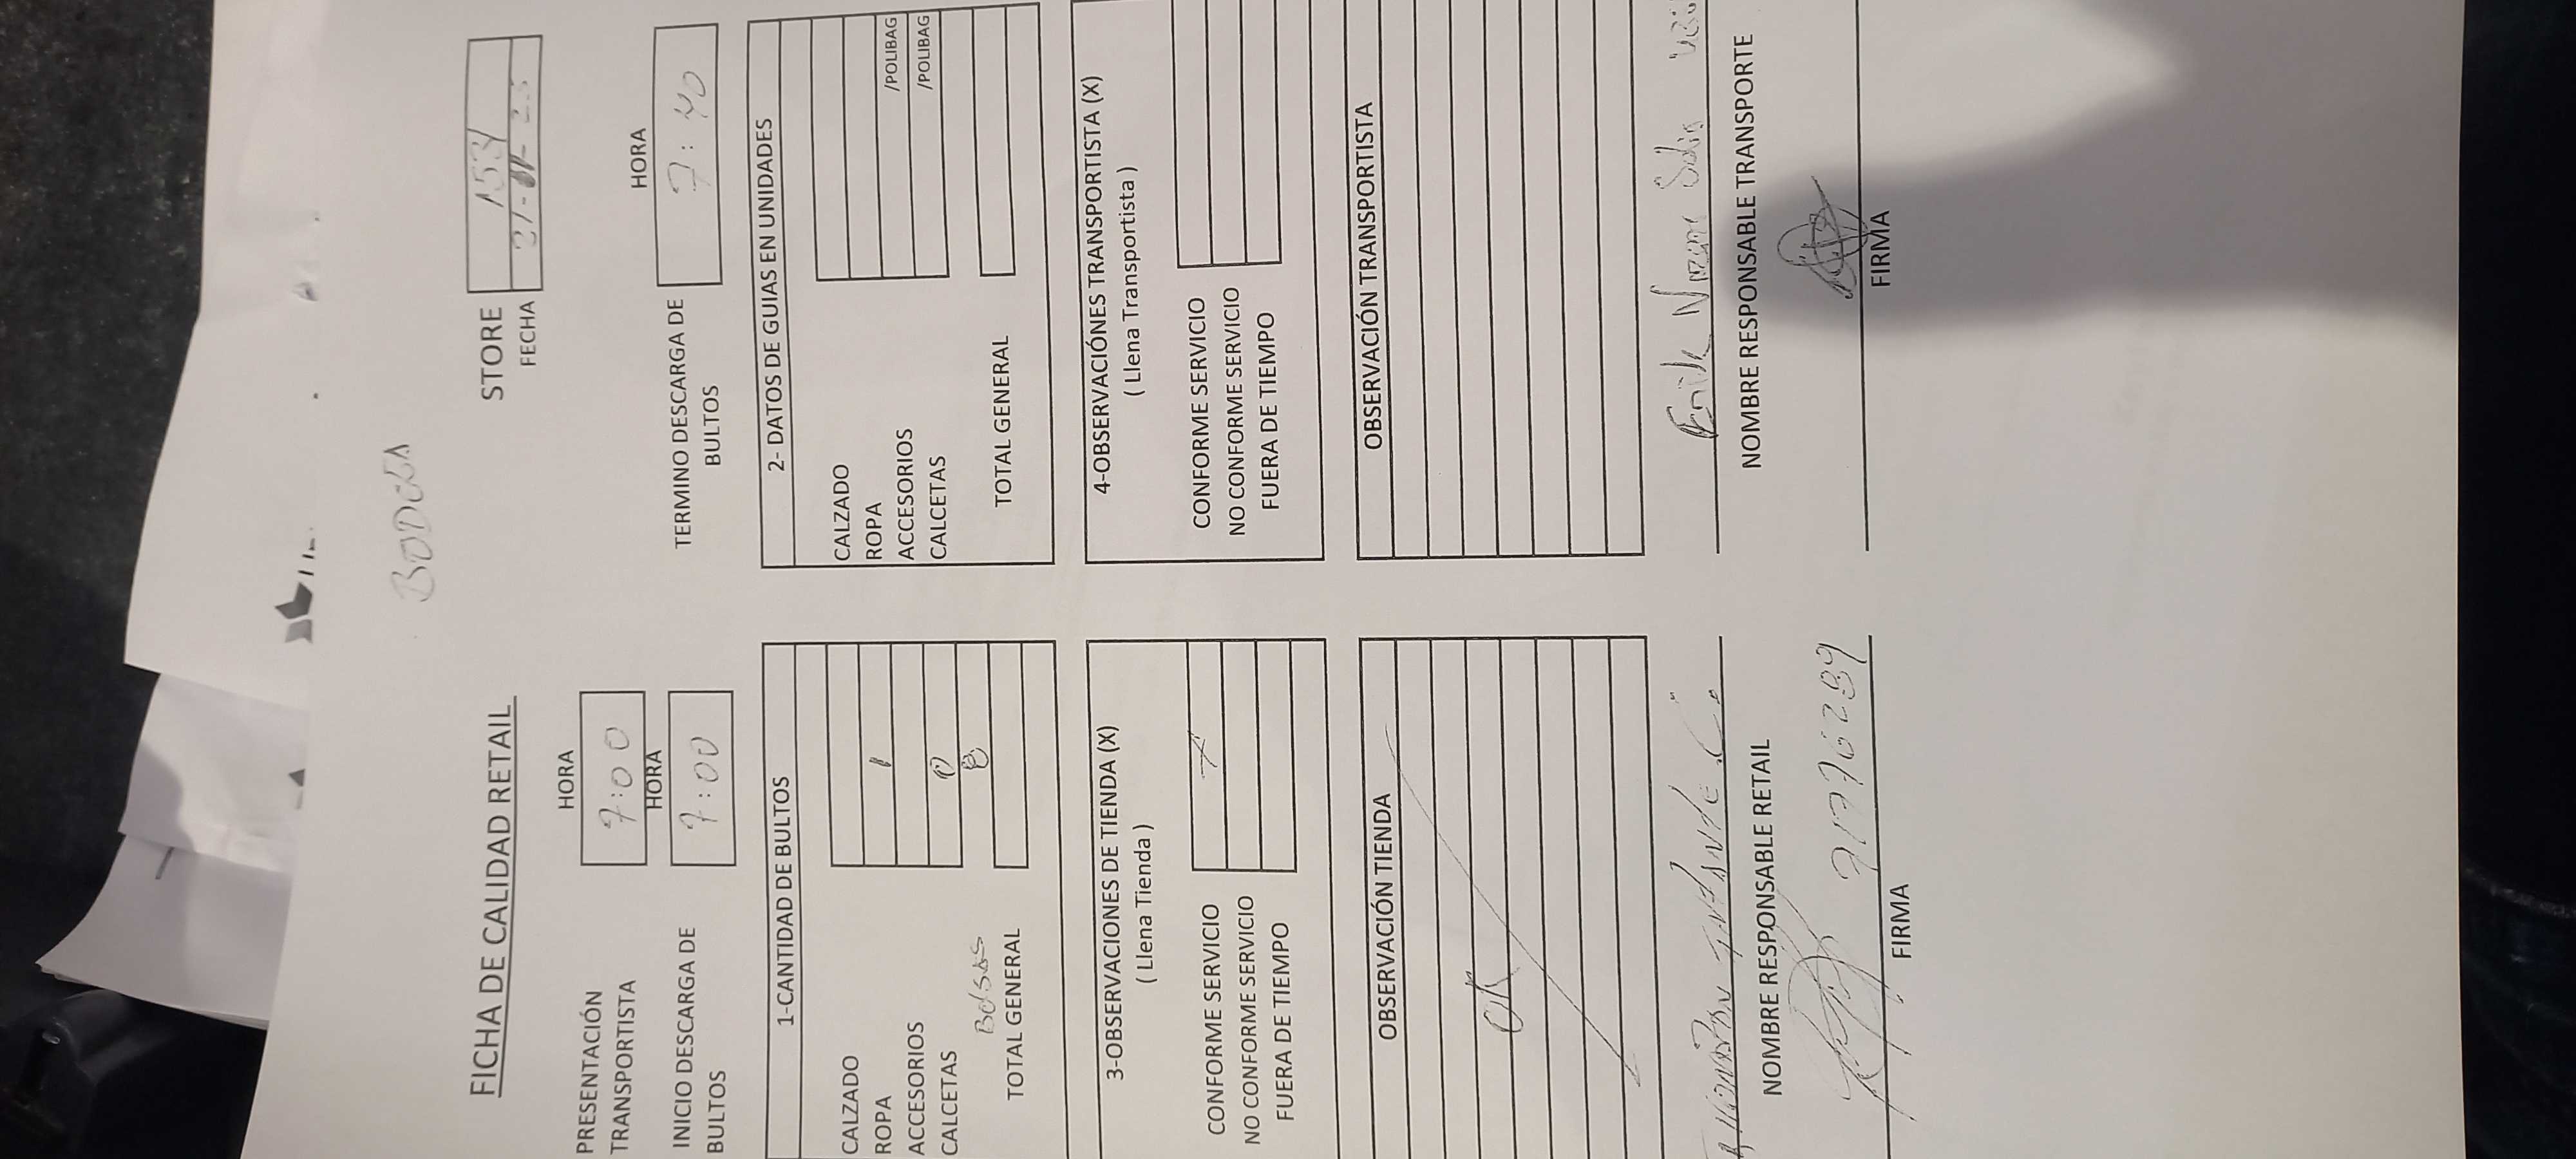 BODEGA
FICHA DE CALIDAD RETAIL
STORE 1534
FECHA
HORA
PRESENTACIÓN TRANSPORTISTA 7:00
HORA
INICIO DESCARGA DE BULTOS 7:00
HORA
TERMINO DESCARGA DE BULTOS 7:40
1-CANTIDAD DE BULTOS
CALZADO
ROPA 1
ACCESORIOS
CALCETAS
BOLSAS
TOTAL GENERAL
2- DATOS DE GUIAS EN UNIDADES
CALZADO
ROPA
ACCESORIOS /POLIBAG
CALCETAS /POLIBAG
TOTAL GENERAL
3-OBSERVACIONES DE TIENDA (X)
( Llena Tienda )
CONFORME SERVICIO X
NO CONFORME SERVICIO
FUERA DE TIEMPO
4-OBSERVACIÓNES TRANSPORTISTA (X)
( Llena Transportista )
CONFORME SERVICIO
NO CONFORME SERVICIO
FUERA DE TIEMPO
OBSERVACIÓN TIENDA
OK
OBSERVACIÓN TRANSPORTISTA
NOMBRE RESPONSABLE RETAIL
FIRMA
NOMBRE RESPONSABLE TRANSPORTE
FIRMA